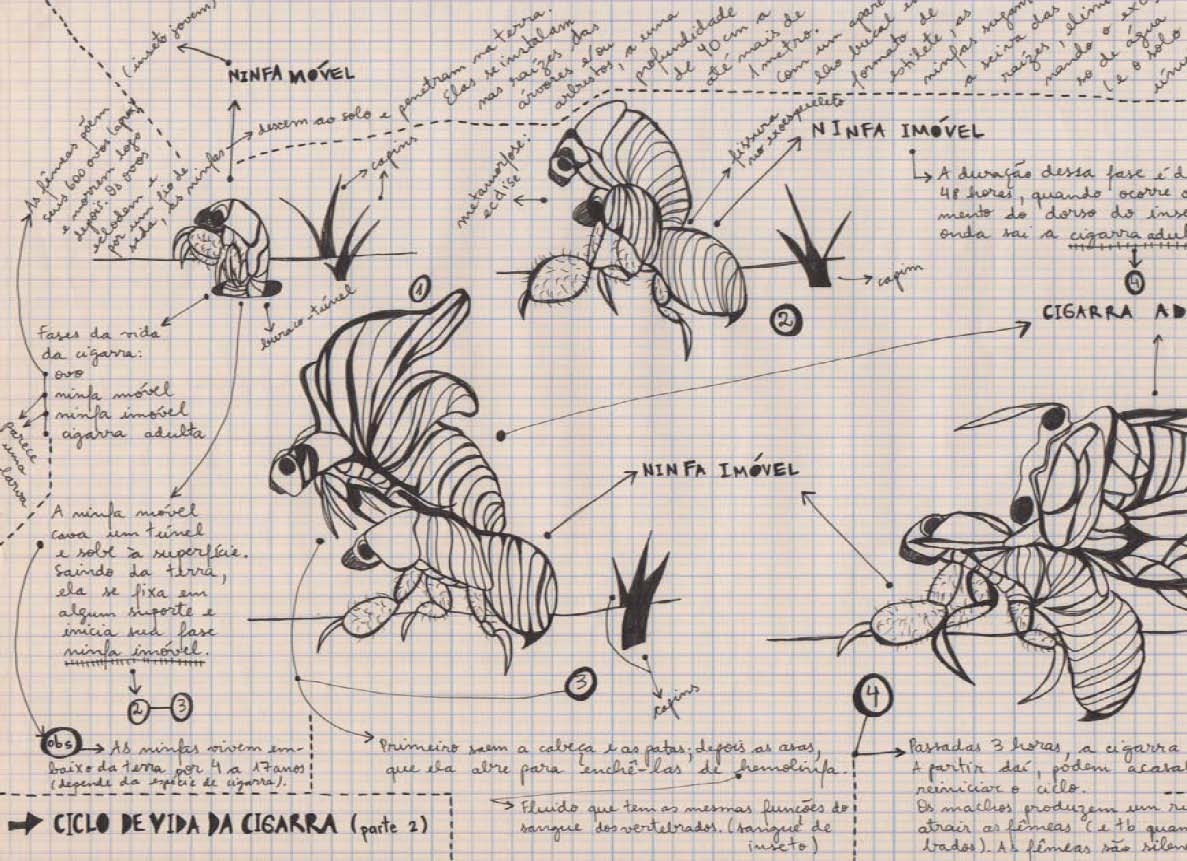 (inseto jovem)
NINFA MÓVEL
As fêmeas põem
seus 600 ovos (após)
e morrem logo
depois. Os ovos
eclodem e
por um fio de
seda, as ninfas
descem ao solo e penetram na terra.
Elas se instalam
nas raízes das
árvores e/ou
arbustos, a uma
profundidade
de 40 cm a
até mais de
1 metro.
com um apare
lho bucal em
formato de
estilete, as
ninfas sugam
a seiva das
raízes, elimi
nando o exc
so de água
(e o solo
úni
capins
buraco-túnel
1
metamorfose:
ecdise
fissura
no exoesqueleto
NINFA IMÓVEL
A duração dessa fase é d
48 horas, quando ocorre o
mento do dorso do inse
onda sai a cigarra adul
4
capim
2
CIGARRA AD
Fases da vida
da cigarra:
ovo
ninfa móvel
ninfa imóvel
cigarra adulta
parece
uma
larva
A ninfa móvel
cava um túnel
e sobe à superfície.
Saindo da terra,
ela se fixa em
algum suporte e
inicia sua fase
ninfa imóvel.
2 3
NINFA IMÓVEL
capins
3
4
obs
As ninfas vivem em-
baixo da terra por 4 a 17 anos
(depende da espécie de cigarra).
Primeiro saem a cabeça e as patas; depois as asas,
que ela abre para enchê-las de hemolinfa.
Fluido que tem as mesmas funções do
sangue dos vertebrados. (sangue de
inseto)
Passadas 3 horas, a cigarra
A partir daí, podem acasal
reiniciar o ciclo.
Os machos produzem um ru
atrair as fêmeas (e tb quan
bados). As fêmeas são silen
CICLO DE VIDA DA CIGARRA (parte 2)